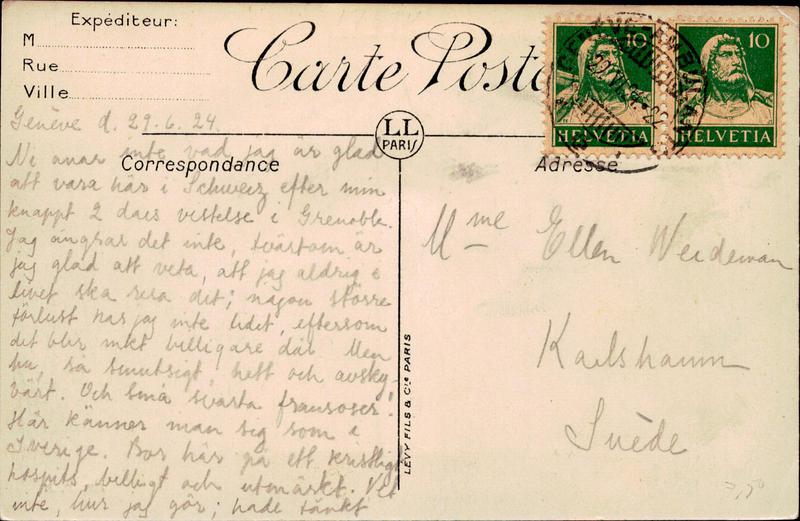 Expéditeur:
M
Rue
Ville
Carte Posta
10
10
HELVETIA
HELVETIA
LL
PARIS
Correspondance
Adresse
Genève d. 29.6.24.
Ni anar inte vad jag är glad
att vara här i Schweiz efter min
knappt 2 dars vistelse i Grenoble.
Jag ångrar det inte, tvärtom är
jag glad att veta, att jag aldrig i
livet ska resa dit; någon större
förlust har jag inte lidit, eftersom
det blir mkt billigare där. Men
hu, så smutsigt, hett och avsky-
värt. Och små svarta fransoser!
Här känner man sig som i
Sverige. Bor här på ett kristligt
hospits, billigt och utmärkt. Vet
inte, hur jag gör; hade tänkt
Mme Ellen Weideman
Karlshamn
Suède
LÉVY FILS & Cie PARIS